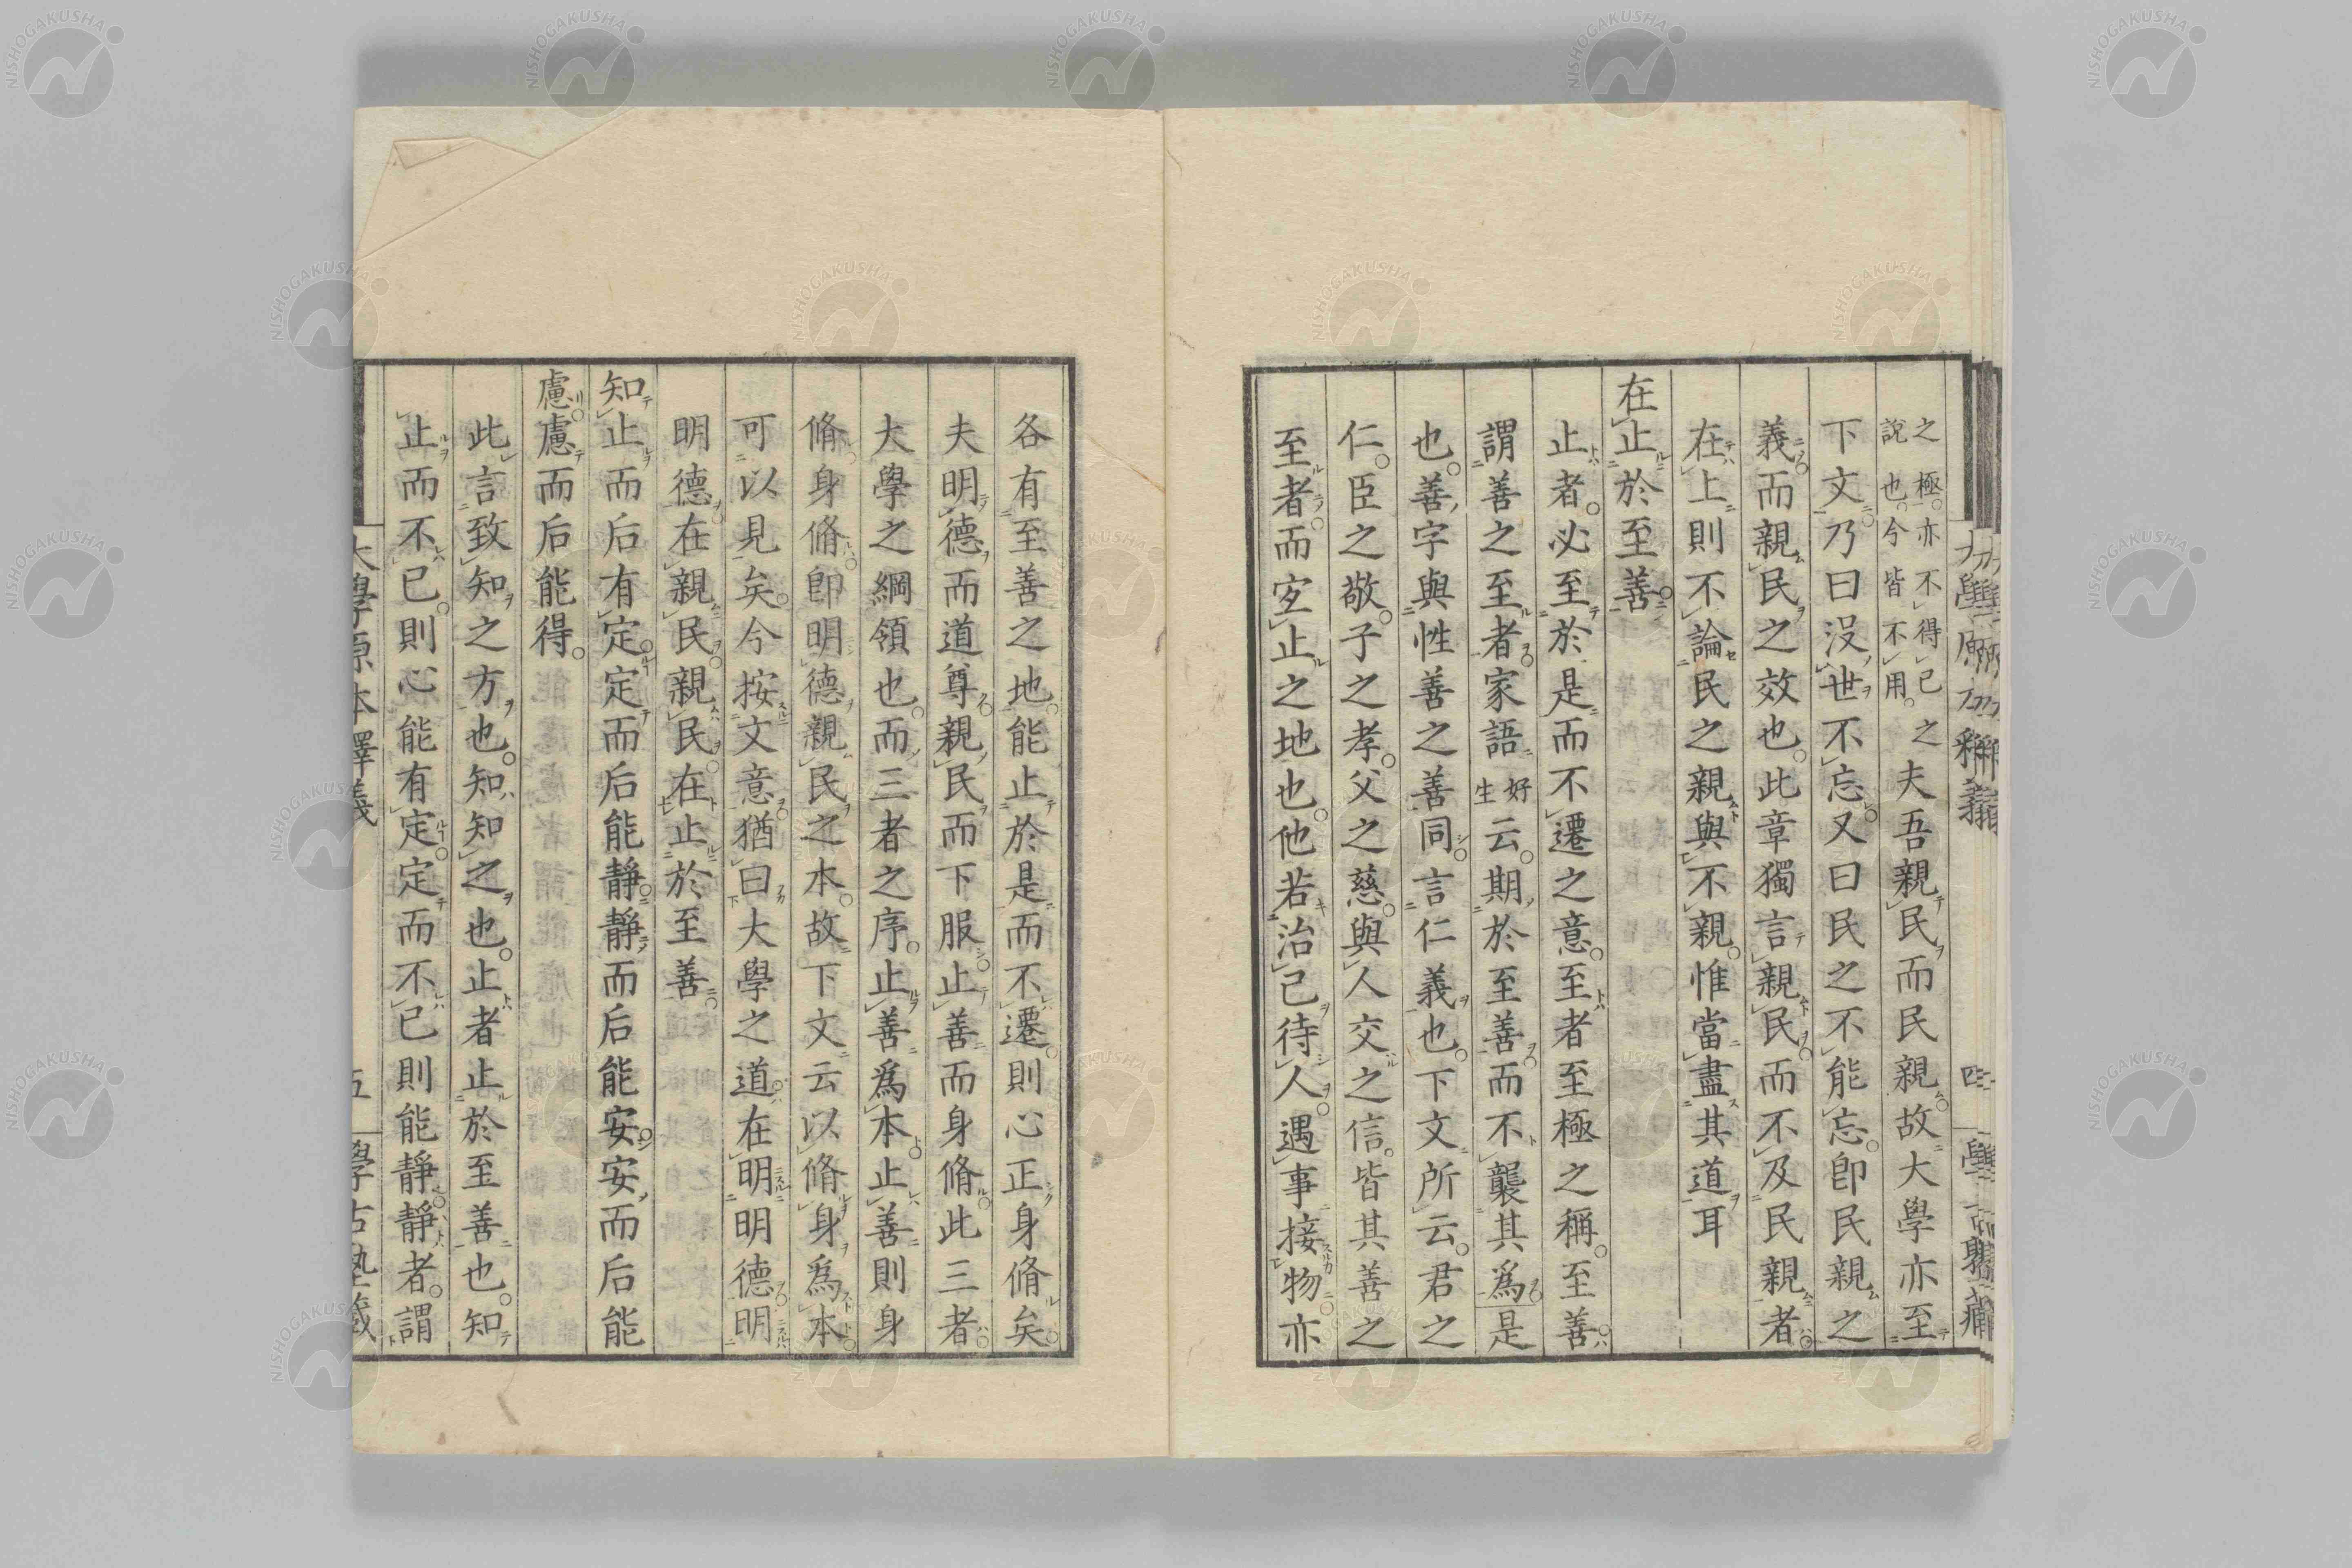 之極。亦不得已之
說也。今皆不用。
夫吾親民而民親。故大學亦至
下文乃曰沒世不忘。又曰民之不能忘。卽民親親之
義。而親民之效也。此章獨言親民。而不及民親者。
在上則不論民之親與不親。惟當盡其道耳
在止於至善。
止者。必至於是而不遷之意。至者至極之稱。至善。
謂善之至者。家語好生云。期於至善。而不襲其爲。是
也。善字與性善之善同。言仁義也。下文所云。君之
仁。臣之敬。子之孝。父之慈。與人交之信。皆其善之
至者。而㝎止之地也。他若治己待人。遇事接物。亦
各有至善之地。能止於是而不遷。則心正身脩矣。
夫明德而道尊。親民而下服。止善而身脩。此三者。
大學之綱領也。而三者之序。止善爲本。止善則身
脩。身脩。卽明德親民之本。故下文云以脩身爲本。
可以見矣。今按文意。猶曰大學之道。在明明德。明
明德。在親民。親民。在止於至善。
知止而后有定。定而后能靜。靜而后能安。安而后能
慮。慮而后能得。
此言致知之方也。知知之也。止者止於至善也。知
止而不已。則心能有定。定而不已則能靜。靜者。謂
大學原本釋義
四
五
學古塾藏
NISHOGAKUSHA